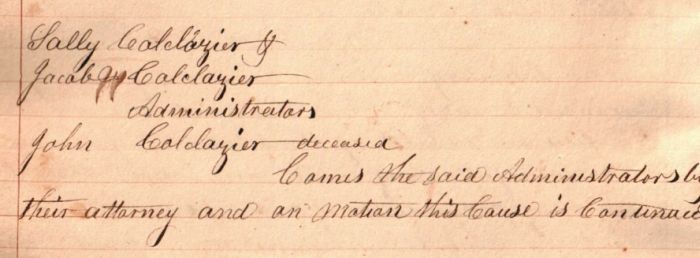 Sally Colclazier &
Jacob Colclazier
Administrators
John Colclazier deceased
Comes the said Administrators by
their attorney and on Motion this Cause is Continued